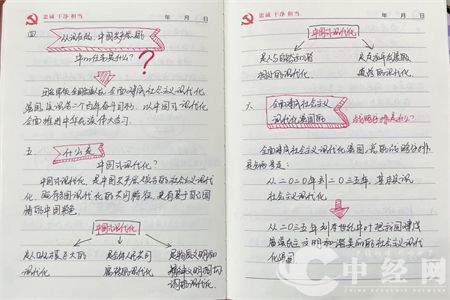 忠诚 干净 担当
年 月 日
四
从现在起，中国共产党的
中心任务是什么？
团结带领全国各族人民全面建成社会主义现代化
强国、实现第二个百年奋斗目标，以中国式现代化
全面推进中华民族伟大复兴。
五
什么是
中国式现代化？
中国式现代化，是中国共产党领导的社会主义现代
化，既有各国现代化的共同特征，更有基于自己国
情的中国特色。
中国式现代化
是人口规模巨大的
现代化
是全体人民共同
富裕的现代化
是物质文明和
精神文明相协
调的现代化
忠诚 干净 担当
年 月 日
中国式现代化
是人与自然和谐
共生的现代化
是走和平发展
道路的现代化
六
全面建成社会主义
现代化强国的
战略安排是什么？
全面建成社会主义现代化强国，总的战略安排
是分两步走：
从二〇二〇年到二〇三五年，基本实现
社会主义现代化
从二〇三五年到本世纪中叶把我国建成
富强民主文明和谐美丽的社会主义现代
化强国
中经网